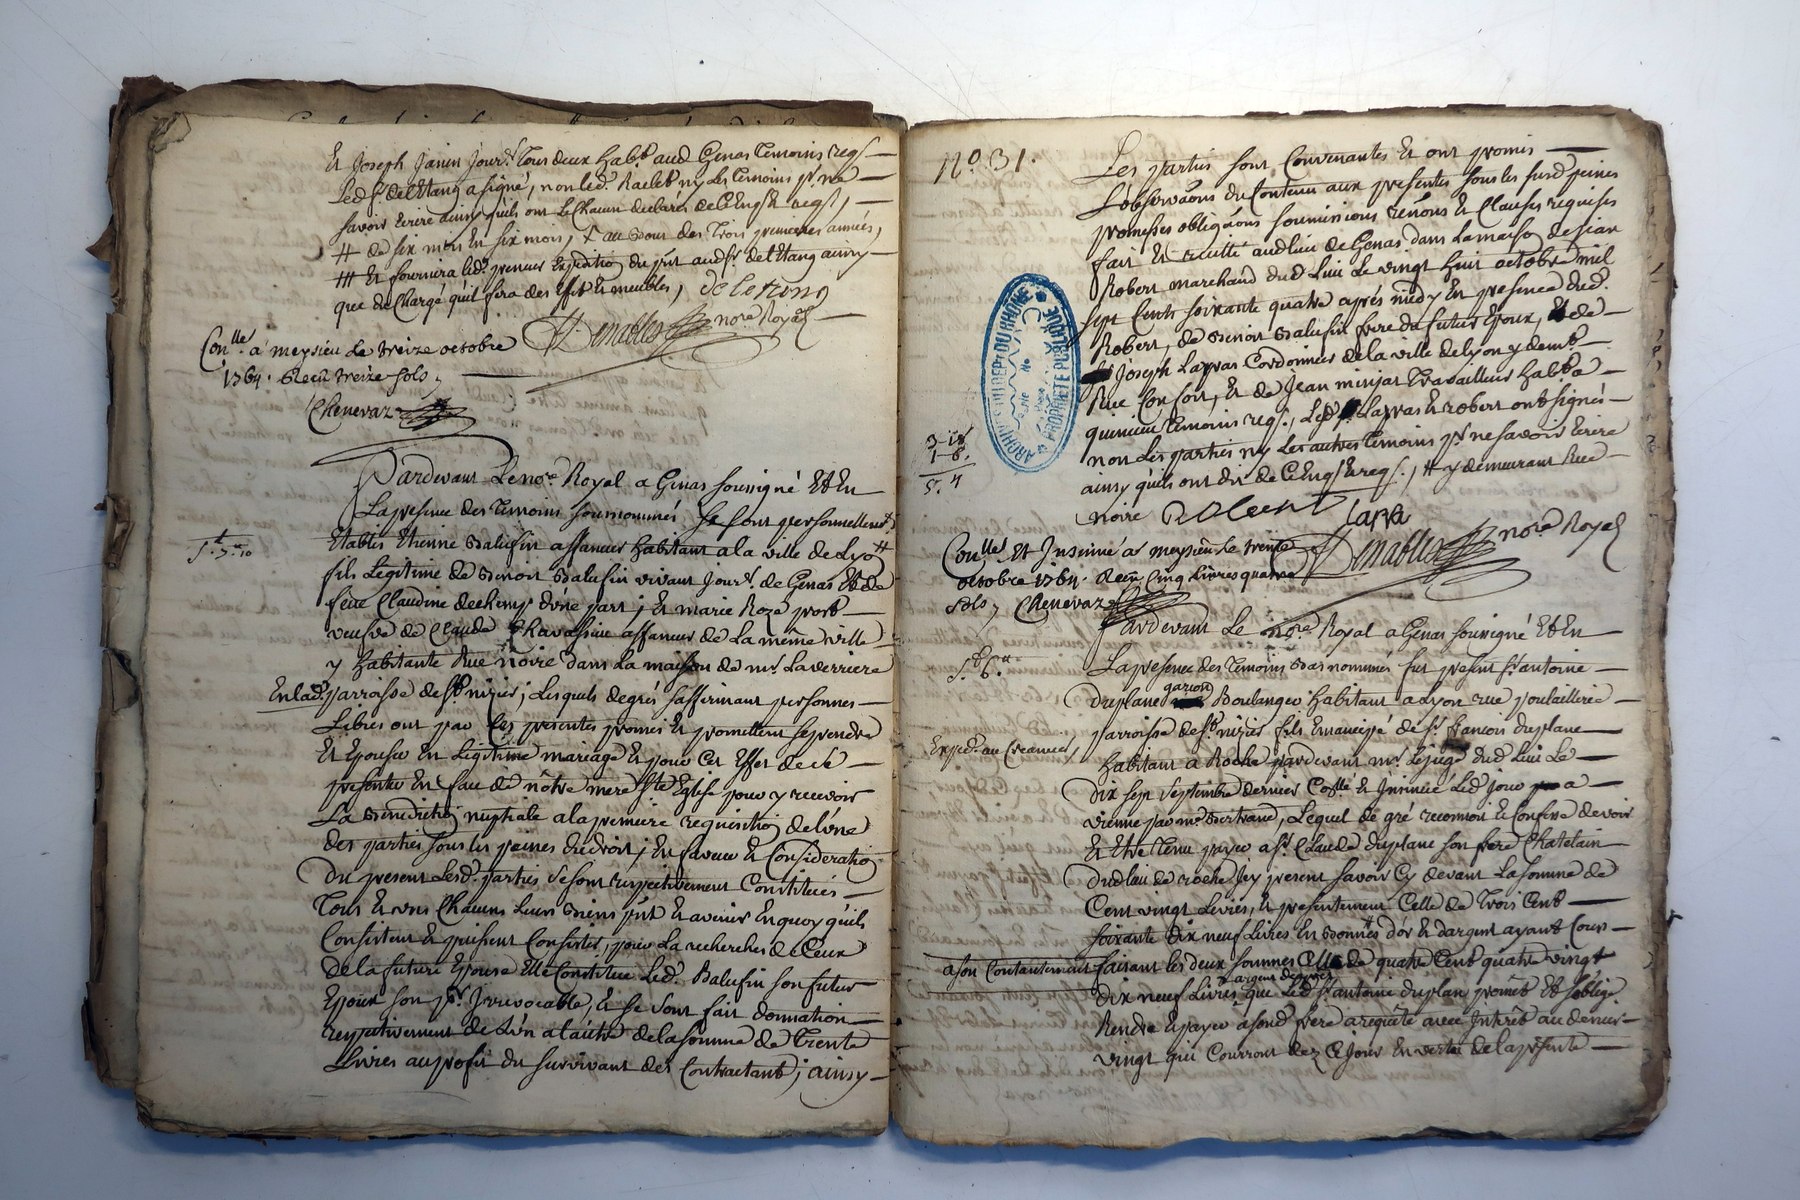 Et Joseph Janin Jour.r tous deux hab.t aud Genas temoins req.s
led s.r deletang a signé, non led. Raclet ny les temoins p.r ne
savoir ecrire ainsy qu'ils ont dechacun declaré de ce enq.s et req.s,
# de six mois en six mois, + au bout des trois premieres années,
Et fournira led. premier Expedition du pnt aud s.r deletang ainsy
que du chargé qu'il fera des Effets & meubles, deletang
Demables no.re Royal
Con.llé a meysieu Le treize octobre
1764. Reçu treize sols,
Chenevaz
Pardevant Le no.re Royal a Genas soussigné Et En
La presence des temoins sounommés se sont personnellem.t
Etablis Etienne Balufin affaneur habitant a la ville de Lyo
fils Legitime de Benoit Balufin vivant jour.r de Genas Et de
feüe Claudine dechamp d'úne part ; Et marie Roze
veufve de Claude Chavassine affaneur de La même ville
y habitante Rue noire dans La maison de m.r Laderriere
En lad. parroisse de S.t nizier ; Lesquels de gré s'affirmant personnes
Libres ont par les presentes promis Et promettent se prendre
Et Epouser En Légitime mariage Et pour Cet Effet de se
presenter En face de nôtre mere S.te Eglise pour y recevoir
La Benediction nuptiale a la premiere requisition de l'úne
des parties sous les peines du droit ; En faveur Et Consideratio
Du present Lesd. parties se sont respectivement Constitués
Tous Et uns Chacuns Leurs Biens p.nt Et avenir En quoy qu'ils
Consistent Et puissent Consister, pour La recherche de Ceux
de la future Epouse Elle Constitue Led. Balufin son futur
Epoux son p.r Irrevocable, Et se sont fait donnation
respectivement de L'ún a l'autre de la somme de Trente
Livres au profit du survivant des Contractant ; ainsy
N.o 31.
Les parties sont Convenantes Et ont promis
L'observaõns du Contenu aux presentes sous les susd peines
promesses obligaõns soumissions renõns Et Clauses requises
fait Et recitté aud lieu de Genas dans La maison de sieur
Robert marchand dud Lieu Le vingt huit octobre mil
sept Cents soixante quatre après midy En presence dud.
Robert, de Benoit Balufin frere du futur Epoux, de
Joseph Lapras Cordonnier de la ville de Lyon y dem.t
Rue Confort, Et de Jean minjat travailleur hab. a
temoins req.s, Led. Lapras Et robert ont signés
non Les parties ny Les autres temoins p.r ne savoir Ecrire
ainsy qu'ils ont dit de ce Enq.s Et req.s, # y demeurant Rue
noire Robert Lapra
Demables no.re Royal
Con.llé Et Insinué a meysieu Le trente
octobre 1764. Reçu Cinq livres quatre
sols, Chenevaz
Pardevant Le no.re Royal a Genas soussigné Et En
La presence des temoins Bas nommés fut present s.r antoine
Duplane garçon Boulanger habitant a Lyon rue poulaillerie
parroisse de S.t nizier fils Emancipé de s.r françois duplane
habitant a Roche pardevant m.r Lejuge dud Lieu Le
Exped. au Creancier,
dix sept septembre dernier Co.llé Et Insinué Led jour a
vienne par m.r Bertrand, Lequel de gré reconnoit Et Confesse devoir
Et Etre tenu payer a s.r Claude duplane son frere Chatelain
Dud Lieu de roche Icy present savoir Cy devant La somme de
Cent vingt Livres, Et presentement Celle de Trois Cent
soixante Dix neuf Livres En d'or Et d'argent ayant Cours
a son Contantement faisant Les deux sommes Celle de quatre Cent quatre vingt
dix neuf Livres que Led s.r antoine duplan promet Et s'oblige
Rendre Et payer a sond frere a requête avec Interêt au denier
vingt qui Courront dez Ce Jour En vertu de La presente